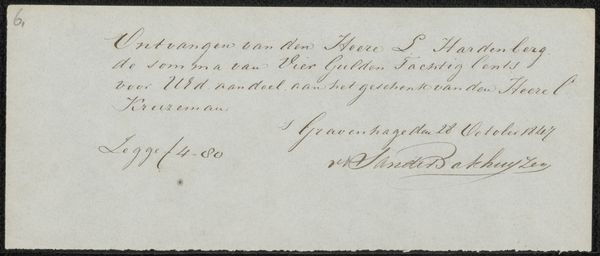 6.
Ontvangen van den Heere L Hardenberg
de somma van Vier Gulden Tachtig Cents
voor UEd aandeel aan het geschenk van den Heere C
Kruzeman
s Gravenhage den 28 October 1847
Zegge f 4-80
vd Sande Bakhuyzen